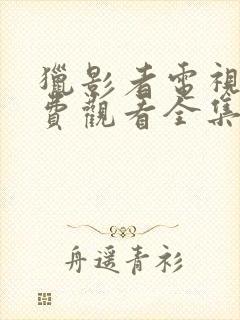 獵影者電視
費觀看全集
舟遥青衫